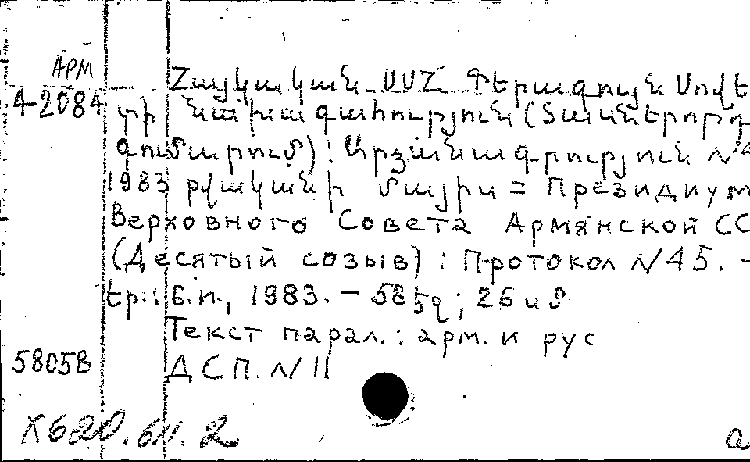 АРМ
4-2084
Հայկական ՍՍՀ Գերագույն Սովե-
տի նախագահություն (Տասներորդ
գումարում) : Արձանագրություն N 4
1983 թվականի մայիս = Президиум
Верховного Совета Армянской СС
(Десятый созыв) : Протокол N 45. –
Եր.: Б.и., 1983. – 58
Текст парал.: арм. и рус
5805В
ДСП. N 11
X620.611.2
а